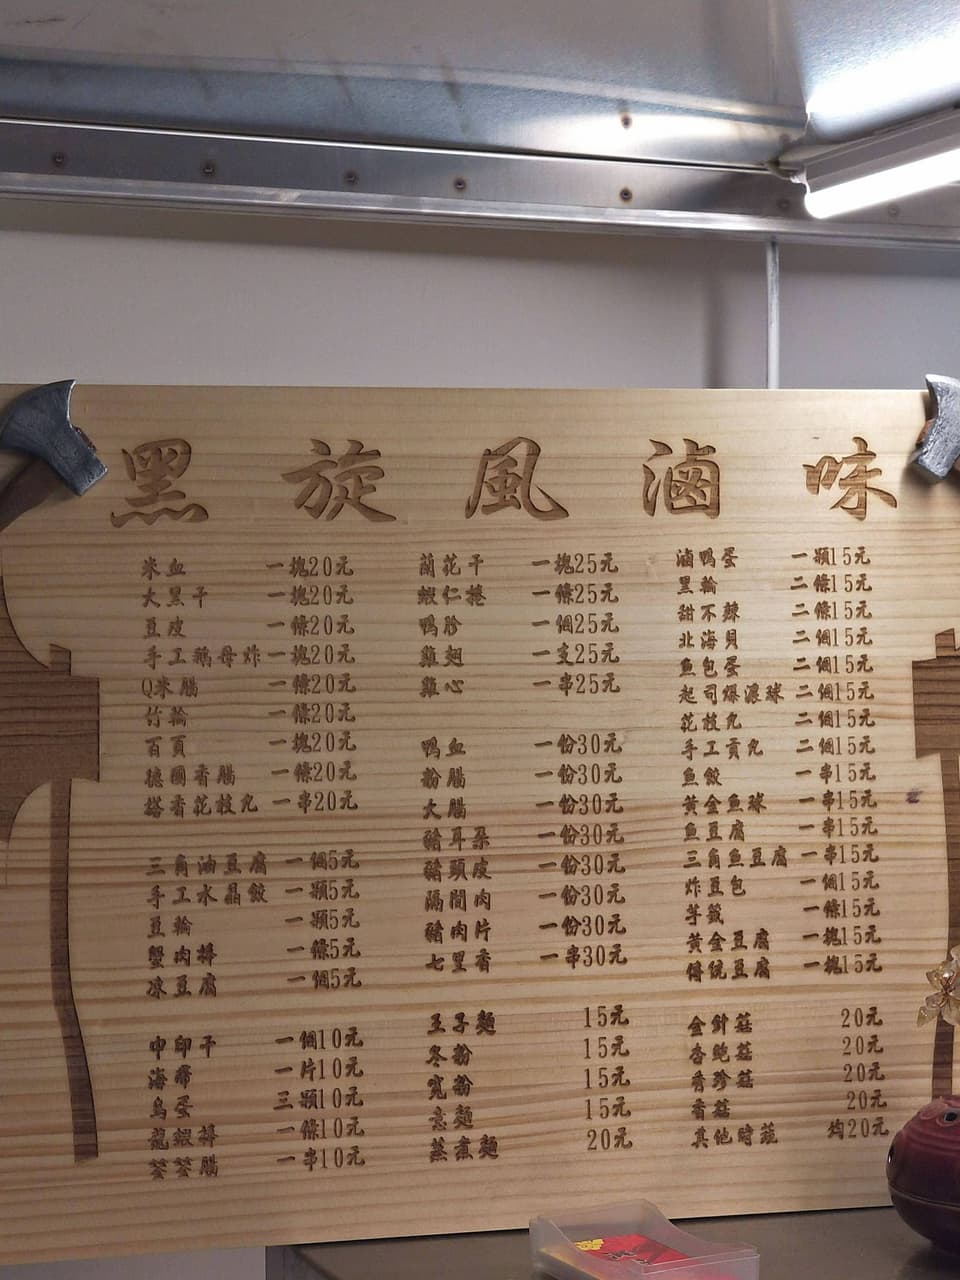 黑旋風滷味
米血 一塊20元
大黑干 一塊20元
豆皮 一條20元
手工鵝母炸 一塊20元
Q米腸 一條20元
竹輪 一條20元
百頁 一塊20元
德國香腸 一條20元
塔香花枝丸 一串20元
三角油豆腐 一個5元
手工水晶餃 一顆5元
豆輪 一顆5元
蟹肉棒 一條5元
凍豆腐 一個5元
中印干 一個10元
海帶 一片10元
鳥蛋 三顆10元
龍蝦棒 一條10元
一串10元
蘭花干 一塊25元
蝦仁捲 一條25元
鴨胗 一個25元
雞翅 一支25元
雞心 一串25元
鴨血 一份30元
粉腸 一份30元
大腸 一份30元
豬耳朵 一份30元
豬頭皮 一份30元
隔間肉 一份30元
豬肉片 一份30元
七里香 一串30元
王子麵 15元
冬粉 15元
寬粉 15元
意麵 15元
蒸煮麵 20元
滷鴨蛋 一顆15元
黑輪 二條15元
甜不辣 二條15元
北海貝 二個15元
魚包蛋 二個15元
起司爆濃球 二個15元
花枝丸 二個15元
手工貢丸 二個15元
魚餃 一串15元
黃金魚球 一串15元
魚豆腐 一串15元
三角魚豆腐 一串15元
炸豆包 一個15元
芋籤 一條15元
黃金豆腐 一塊15元
傳統豆腐 一塊15元
金針菇 20元
杏鮑菇 20元
秀珍菇 20元
香菇 20元
其他時蔬 均20元